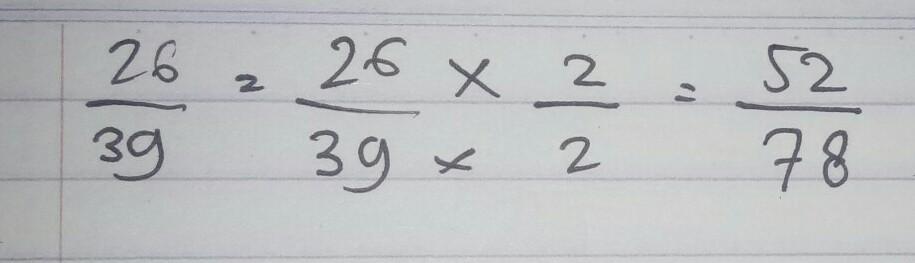 26/39 = 26/39 × 2/2 = 52/78